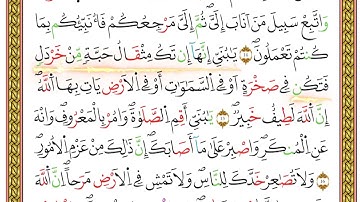 وَاتَّبِعْ سَبِيلَ مَنْ اَنَابَ اِلَيَّ ثُمَّ اِلَيَّ مَرْجِعُكُمْ فَاُنَبِّئُكُمْ بِمَا
كُنْتُمْ تَعْمَلُونَ ﴿١٥﴾ يَا بُنَيَّ اِنَّهَا اِنْ تَكُ مِثْقَالَ حَبَّةٍ مِنْ خَرْدَلٍ
فَتَكُنْ فِي صَخْرَةٍ اَوْ فِي السَّمٰوَاتِ اَوْ فِي الْاَرْضِ يَاْتِ بِهَا اللّٰهُ
اِنَّ اللّٰهَ لَطِيفٌ خَبِيرٌ ﴿١٦﴾ يَا بُنَيَّ اَقِمِ الصَّلٰوةَ وَاْمُرْ بِالْمَعْرُوفِ وَانْهَ
عَنِ الْمُنْكَرِ وَاصْبِرْ عَلٰى مَا اَصَابَكَ اِنَّ ذٰلِكَ مِنْ عَزْمِ الْاُمُورِ
﴿١٧﴾ وَلَا تُصَعِّرْ خَدَّكَ لِلنَّاسِ وَلَا تَمْشِ فِي الْاَرْضِ مَرَحًا اِنَّ اللّٰهَ